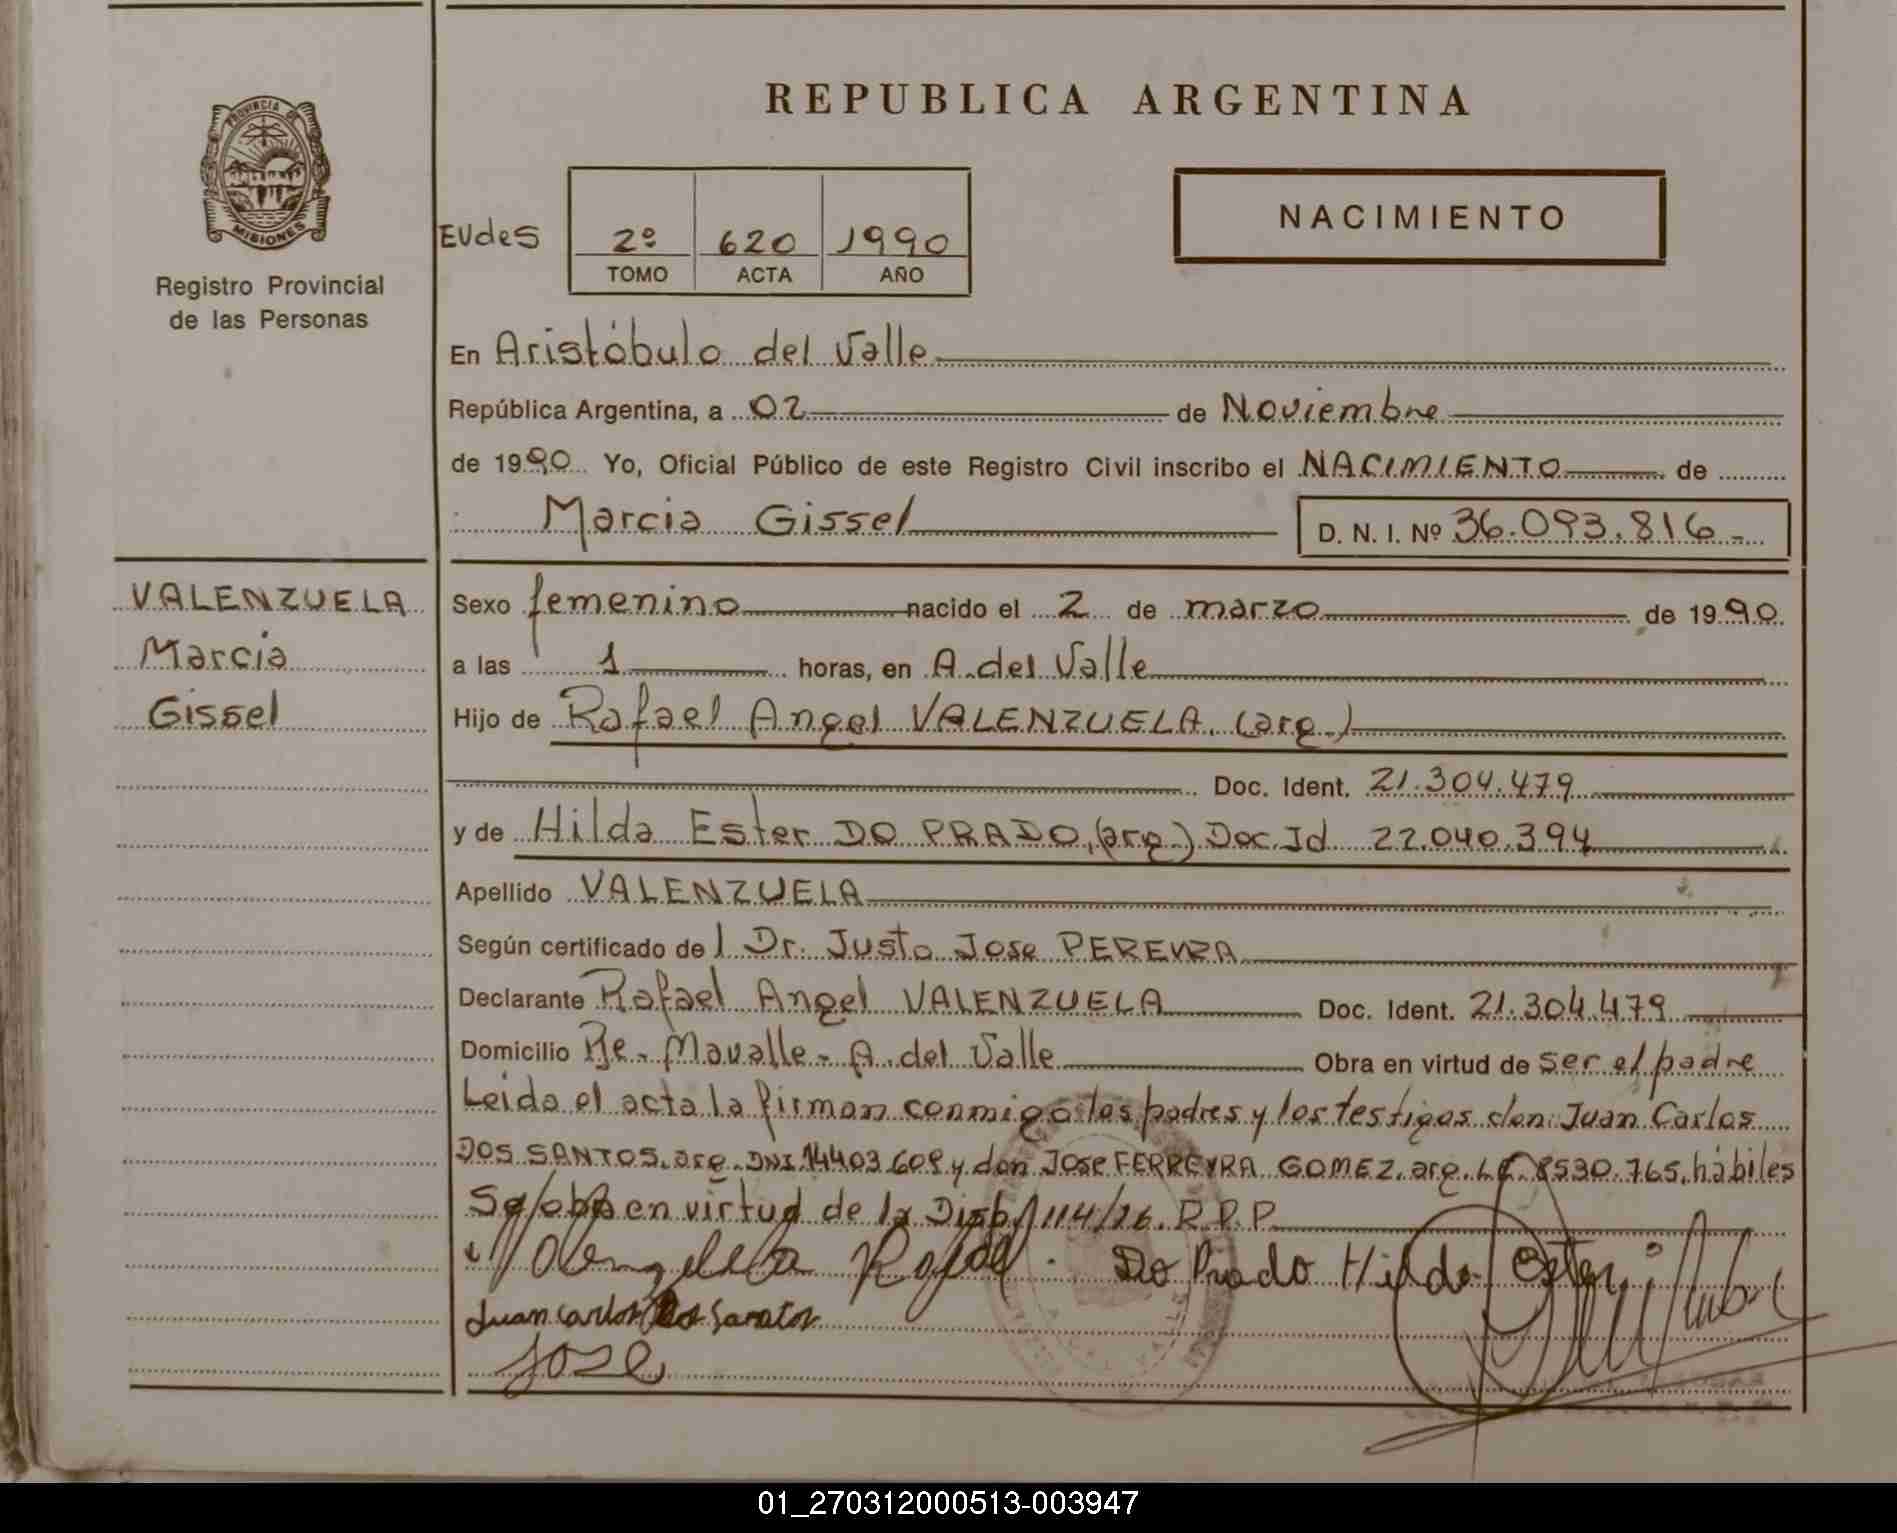 REPUBLICA ARGENTINA
PROVINCIA DE
MISIONES
Registro Provincial
de las Personas
EUdeS
2º 620 1990
TOMO ACTA AÑO
NACIMIENTO
En Aristóbulo del Valle
República Argentina, a 02 de Noviembre
de 1990 Yo, Oficial Público de este Registro Civil inscribo el NACIMIENTO de
Marcia Gissel D. N. I. Nº 36.093.816-
VALENZUELA
Marcia
Gissel
Sexo femenino nacido el 2 de marzo de 1990
a las 1 horas, en A. del Valle
Hijo de Rafael Angel VALENZUELA. (arg.)
Doc. Ident. 21.304.479
y de Hilda Ester DO PRADO, (arg.) Doc. Id 22.040.394
Apellido VALENZUELA
Según certificado del Dr. Justo Jose PEREYRA
Declarante Rafael Angel VALENZUELA Doc. Ident. 21.304.479
Domicilio Pje. Mavalle - A. del Valle Obra en virtud de ser el padre
Leida el acta la firman conmigo los padres y los testigos don: Juan Carlos
DOS SANTOS. arg. DNI 14403 609 y don Jose FERREYRA GOMEZ. arg. LE. 8530.765. hábiles
Se en virtud de la 114/76. R.P.P.
Valenzuela Rafael Do Prado Hilda Ester
Juan Carlos Dos Santos
Jose
01_270312000513-003947